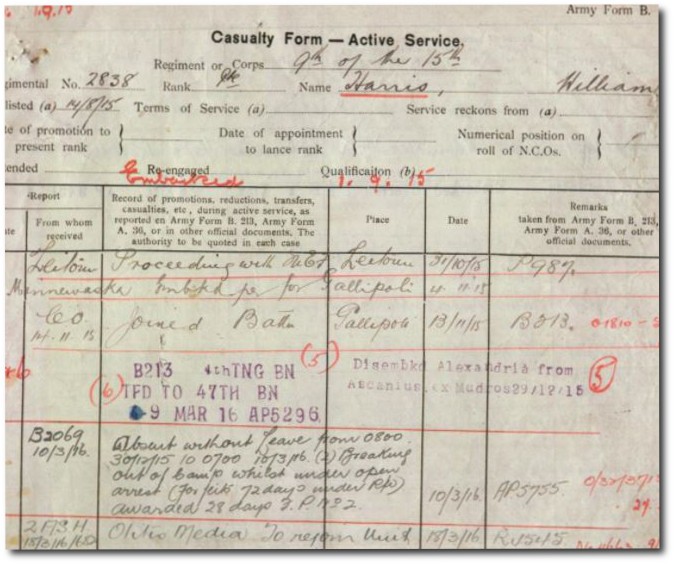 1.9.15
Army Form B.
Casualty Form — Active Service.
Regiment or Corps 9th of the 15th
gimental No. 2838 Rank Pte Name Harris, William
listed (a) 14/8/15 Terms of Service (a) Service reckons from (a)
te of promotion to present rank } Date of appointment to lance rank } Numerical position on roll of N.C.Os. }
ended Re-engaged Qualificaiton (b)
Embarked 1. 9. 15
Report
te
From whom received
Record of promotions, reductions, transfers, casualties, etc, during active service, as reported en Army Form B. 213, Army Form A. 36, or in other official documents. The authority to be quoted in each case
Place
Date
Remarks taken from Army Form B. 213, Army Form A. 36, or other official documents.
Zeitoun Proceeding with Zeitoun 31/10/15 P987.
Minnewaska Embkd per for Gallipoli 4.11.15
CO. Joined Battn Gallipoli 13/11/15 B213.
14.11.15
(5)
B213 4thTNG BN
(6) TFD TO 47TH BN
9 MAR 16 AP5296
Disembkd Alexandria from
Ascanius, ex Mudros 29/12/15
5
B2069 Absent without Leave from 0800
10/3/16. 30/12/15 to 0700 10/3/16. (2) Breaking
out of Camp whilst under open
arrest (forfeits 72 days under R.W.)
awarded 28 days F.P. No 2. 10/3/16. AP5755
Otitis Media To rejoin Unit 18/3/16